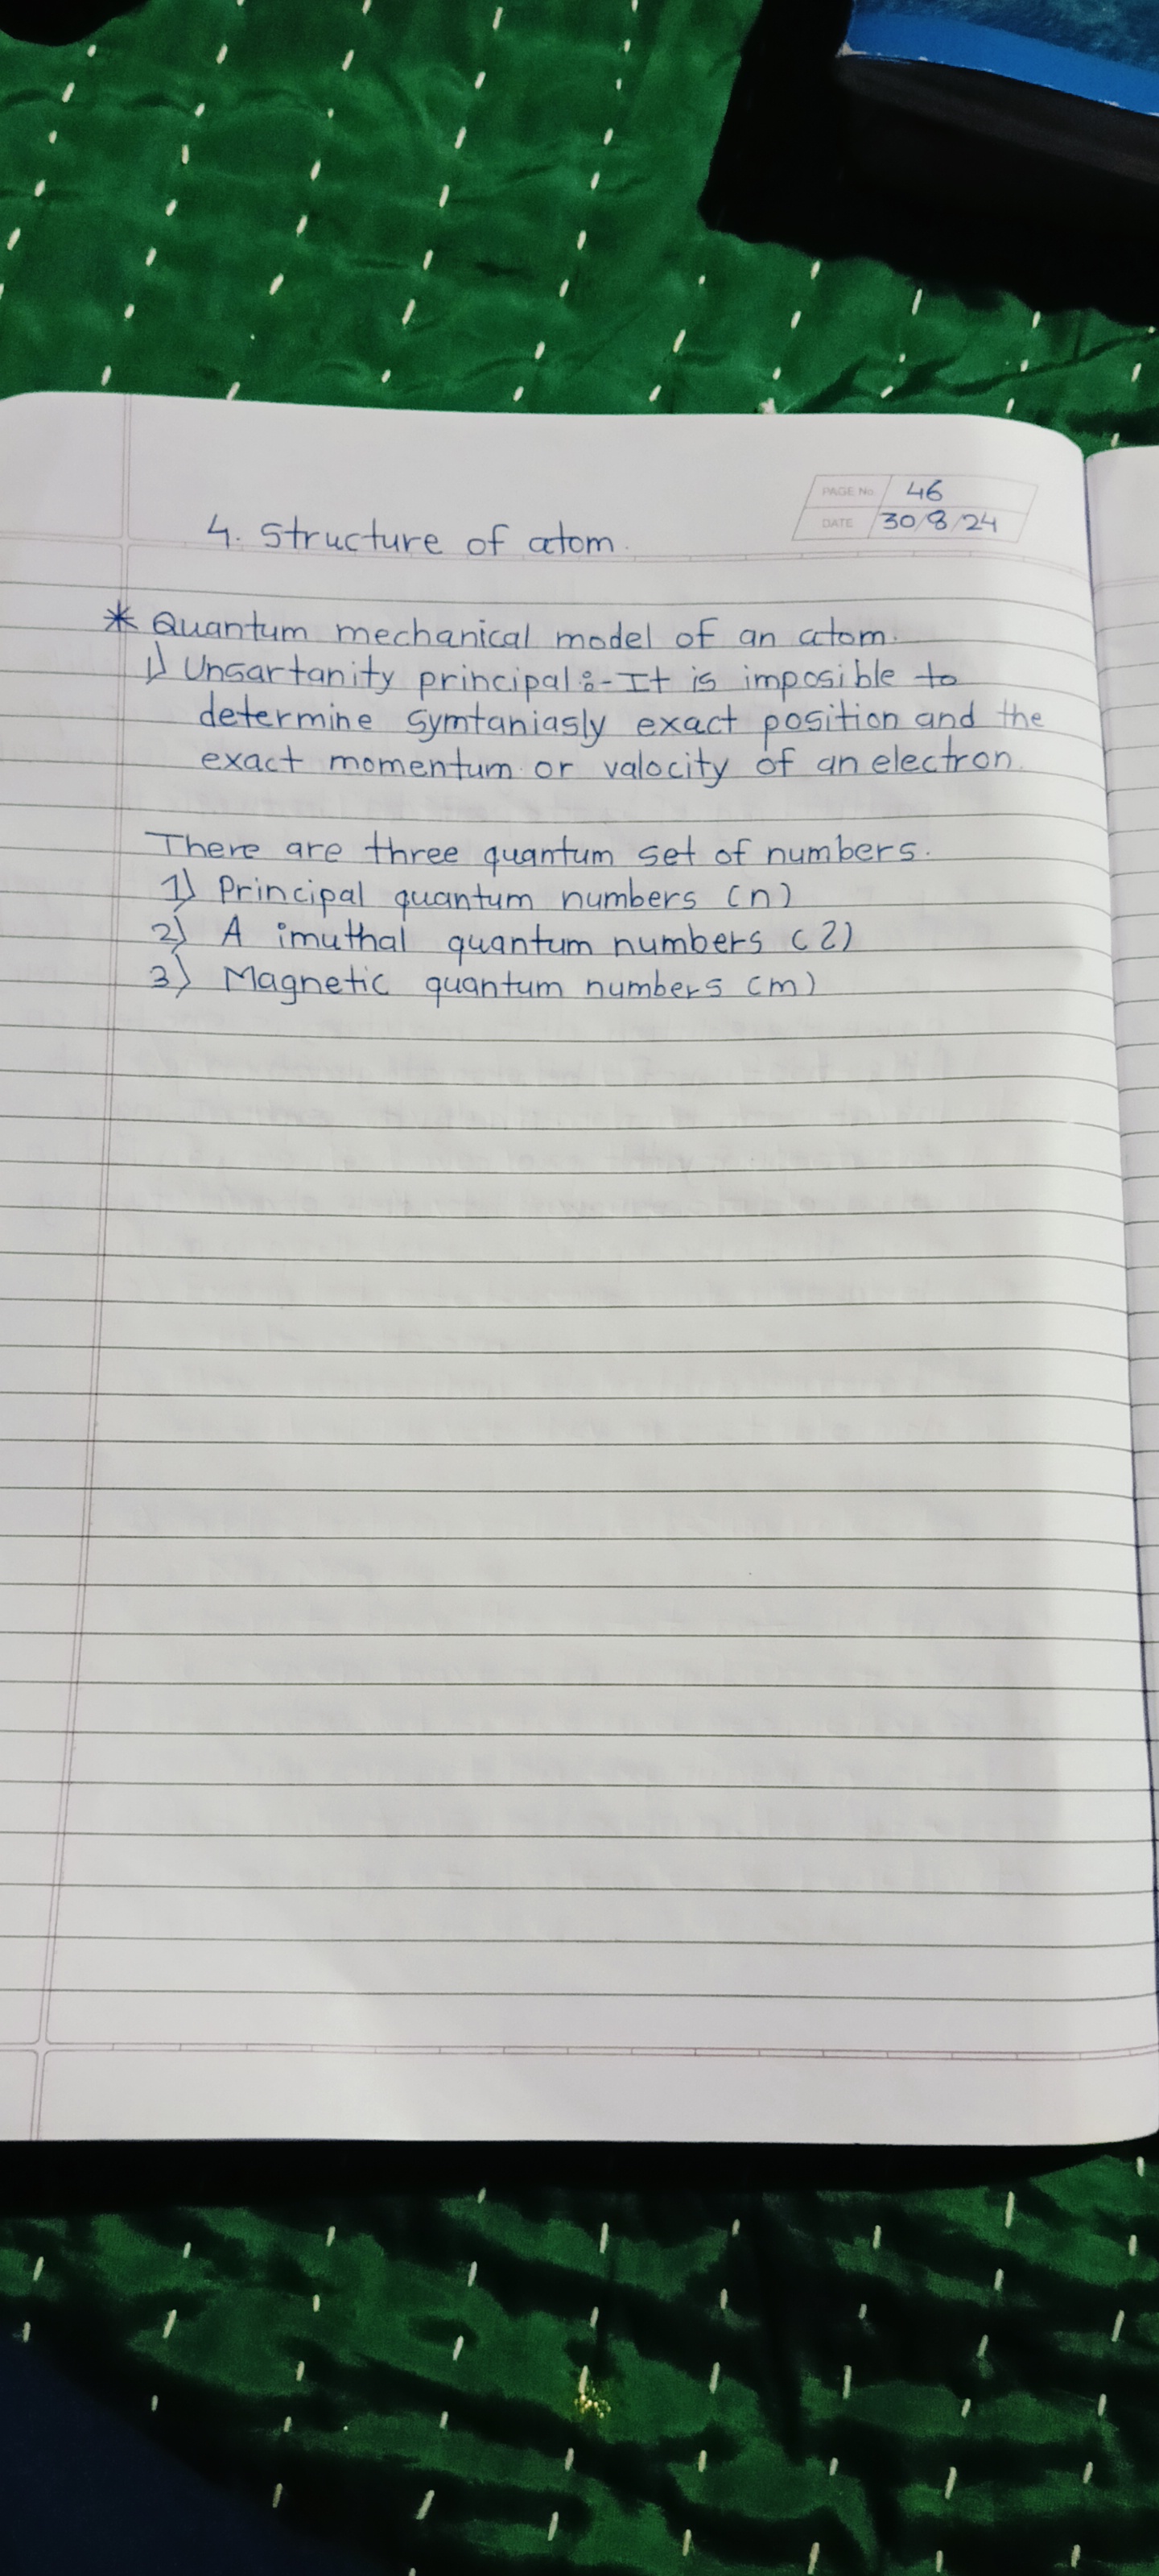 PAGE No. 46
DATE 30/8/24
4. Structure of atom.
* Quantum mechanical model of an atom.
1) Unsartanity principal :- It is imposible to
determine symtaniasly exact position and the
exact momentum or valocity of an electron.
There are three quantum set of numbers.
1) Principal quantum numbers (n)
2) A imuthal quantum numbers (l)
3) Magnetic quantum numbers (m)